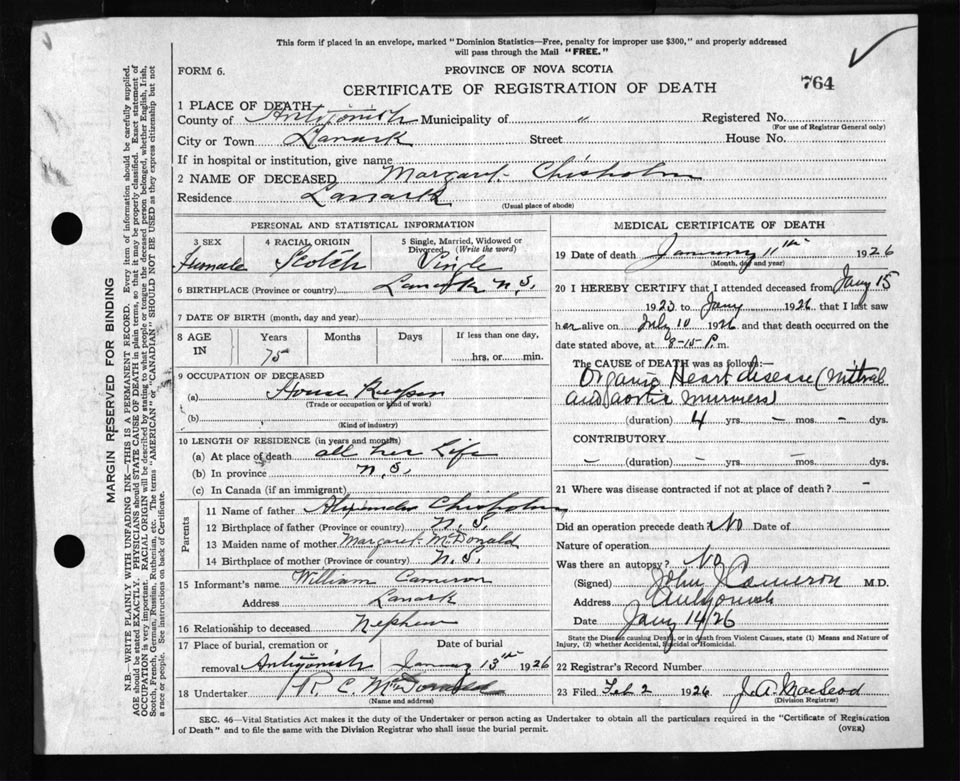 This form if placed in an envelope, marked "Dominion Statistics—Free, penalty for improper use $300," and properly addressed
will pass through the Mail "FREE."
FORM 6.
PROVINCE OF NOVA SCOTIA
CERTIFICATE OF REGISTRATION OF DEATH
764
MARGIN RESERVED FOR BINDING
N.B.—WRITE PLAINLY WITH UNFADING INK—THIS IS A PERMANENT RECORD. Every item of information should be carefully supplied.
AGE should be stated EXACTLY. PHYSICIANS should STATE CAUSE OF DEATH in plain terms, so that it may be properly classified. Exact statement of
OCCUPATION is very important. RACIAL ORIGIN will be described by stating to what people or tongue the deceased person belonged, whether English, Irish,
Scotch, French, German, Russian, Ruthenian, etc. The terms "AMERICAN" or "CANADIAN" SHOULD NOT BE USED as they express citizenship but not
a race or people. See instructions on back of Certificate.
1 PLACE OF DEATH
County of Antigonish Municipality of " Registered No.
(For use of Registrar General only)
City or Town Lanark Street House No.
If in hospital or institution, give name
2 NAME OF DECEASED Margaret Chisholm
Residence Lanark
(Usual place of abode)
PERSONAL AND STATISTICAL INFORMATION
3 SEX 4 RACIAL ORIGIN 5 Single, Married, Widowed or
Divorced (Write the word)
Female Scotch Single
6 BIRTHPLACE (Province or country) Lanark N.S.
7 DATE OF BIRTH (month, day and year)
8 AGE IN Years Months Days If less than one day,
75 hrs. or min.
9 OCCUPATION OF DECEASED
(a) House Keeper
(Trade or occupation or kind of work)
(b)
(Kind of industry)
10 LENGTH OF RESIDENCE (in years and months)
(a) At place of death all her Life
(b) In province N.S.
(c) In Canada (if an immigrant)
Parents
11 Name of father Alexander Chisholm
12 Birthplace of father (Province or country) N.S.
13 Maiden name of mother Margaret McDonald
14 Birthplace of mother (Province or country) N.S.
15 Informant's name William Cameron
Address Lanark
16 Relationship to deceased Nephew
17 Place of burial, cremation or Date of burial
removal Antigonish January 13th 1926
18 Undertaker R. C. McDonald
(Name and address)
MEDICAL CERTIFICATE OF DEATH
19 Date of death January 11th 1926
(Month, day and year)
20 I HEREBY CERTIFY that I attended deceased from Jany 15
1923 to Jany 1926 that I last saw
her alive on July 10 1926 and that death occurred on the
date stated above, at 8-15 P. m.
The CAUSE of DEATH was as follows:—
Organic Heart disease (mitral
and aortic murmers)
(duration) 4 yrs. — mos. — dys.
CONTRIBUTORY
— (duration) — yrs. — mos. — dys.
21 Where was disease contracted if not at place of death? -
Did an operation precede death? No Date of
Nature of operation
Was there an autopsy? No
(Signed) John J Cameron M.D.
Address Antigonish
Date Jany 14/26
State the Disease causing Death, or in death from Violent Causes, state (1) Means and Nature of
Injury, (2) whether Accidental, Suicidal or Homicidal.
22 Registrar's Record Number
23 Filed Feb 2 1926 J. A. MacLeod
(Division Registrar)
SEC. 46—Vital Statistics Act makes it the duty of the Undertaker or person acting as Undertaker to obtain all the particulars required in the "Certificate of Registration
of Death" and to file the same with the Division Registrar who shall issue the burial permit.
(OVER)